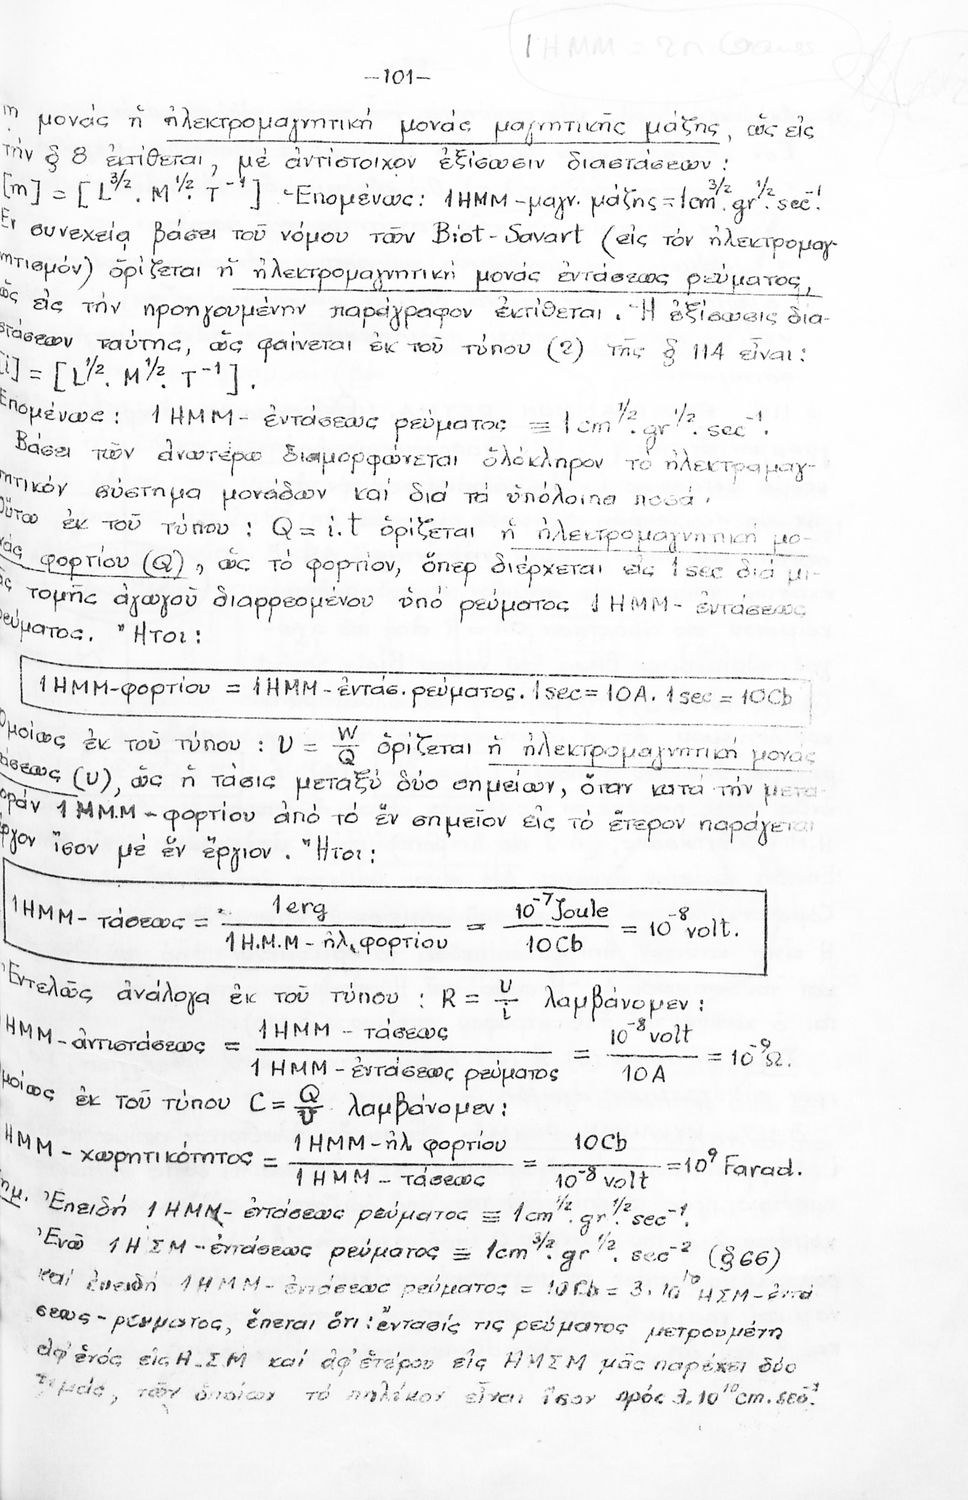 1 HMM =
-101-
μονάς ἤ ἠλεκτρομαγνητική μονάς μαγνητικῆς μάζης, ὡς εἰς
τήν § 8 ἐκτίθεται, μέ ἀντίστοιχον ἐξίσωσιν διαστάσεων:
[m] = [L^3/2. M^1/2. T^-1] Ἑπομένως: 1HMM-μαγν. μάζης = 1cm^3/2. gr^1/2. sec^-1.
Ἐν συνεχείᾳ βάσει τοῦ νόμου τῶν Biot-Savart (εἰς τόν ἠλεκτρομαγ-
νητισμόν) ὁρίζεται ἡ ἠλεκτρομαγνητική μονάς ἐντάσεως ρεύματος,
ὡς εἰς τήν προηγουμένην παράγραφον ἐκτίθεται. Ἡ ἐξίσωσις δια-
στάσεων ταύτης, ὡς φαίνεται ἐκ τοῦ τύπου (2) τῆς § 114 εἶναι:
[i] = [L^1/2. M^1/2. T^-1].
Ἑπομένως: 1 HMM- ἐντάσεως ρεύματος ≡ 1cm^1/2. gr^1/2. sec^-1.
Βάσει τῶν ἀνωτέρω διαμορφώνεται ὁλόκληρον τό ἠλεκτρομαγ-
νητικόν σύστημα μονάδων καί διά τά ὑπόλοιπα ποσά.
Οὕτω ἐκ τοῦ τύπου: Q = i.t ὁρίζεται ἡ ἠλεκτρομαγνητική μο-
νάς φορτίου (Q), ὡς τό φορτίον, ὅπερ διέρχεται εἰς 1sec διά μι-
ᾶς τομῆς ἀγωγοῦ διαρρεομένου ὑπό ρεύματος 1 HMM- ἐντάσεως
ρεύματος. Ἤτοι:
1 HMM-φορτίου = 1HMM-ἐντάσ. ρεύματος. 1sec = 10A. 1sec = 10Cb
Ὁμοίως ἐκ τοῦ τύπου: U = W/Q ὁρίζεται ἡ ἠλεκτρομαγνητική μονάς
τάσεως (υ), ὡς ἡ τάσις μεταξύ δύο σημείων, ὅταν κατά τήν μετα-
φοράν 1 HM.M-φορτίου ἀπό τό ἕν σημεῖον εἰς τό ἕτερον παράγεται
ἔργον ἴσον μέ ἕν ἔργιον. Ἤτοι:
1HMM- τάσεως = 1erg / 1H.M.M-ἠλ. φορτίου = 10^-7 Joule / 10Cb = 10^-8 volt.
Ἐντελῶς ἀνάλογα ἐκ τοῦ τύπου: R = U/i λαμβάνομεν:
1HMM-ἀντιστάσεως = 1HMM - τάσεως / 1 HMM-ἐντάσεως ρεύματος = 10^-8 volt / 10A = 10^-9 Ω.
Ὁμοίως ἐκ τοῦ τύπου C = Q/U λαμβάνομεν:
1HMM - χωρητικότητος = 1 HMM-ἠλ φορτίου / 1 HMM - τάσεως = 10Cb / 10^-8 volt = 10^9 Farad.
Σημ. Ἐπειδή 1 HMM- ἐντάσεως ρεύματος ≡ 1cm^1/2. gr^1/2. sec^-1.
Ἐνῶ 1 HΣM-ἐντάσεως ρεύματος ≡ 1cm^3/2. gr^1/2. sec^-2 (§ 66)
καί ἐπειδή 1HMM-ἐντάσεως ρεύματος = 10Cb = 3.10^10 HΣM-ἐντά
σεως-ρεύματος, ἕπεται ὅτι: ἔντασίς τις ρεύματος μετρουμένη
ἀφ' ἑνός εἰς H.ΣM καί ἀφ' ἑτέρου εἰς HMΣM μᾶς παρέχει δύο
τιμάς, τῶν ὁποίων τό πηλίκον εἶναι ἴσον πρός 3.10^10 cm.sec^-1